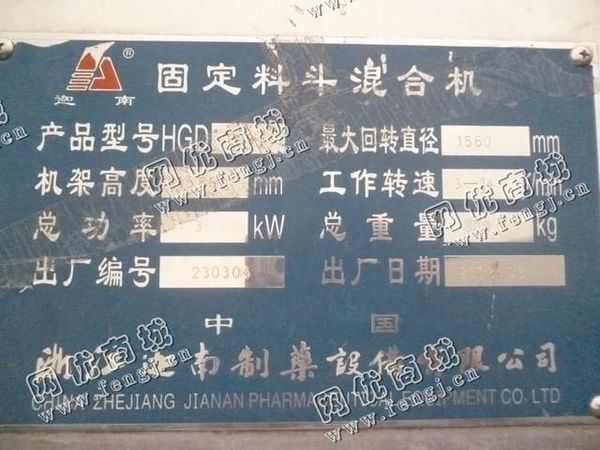 迦南 ®
固定料斗混合机
产品型号 HGD 最大回转直径 1560 mm
机架高度 mm 工作转速
总功率 3 kW 总重量 kg
出厂编号 230304 出厂日期
中国
浙江迦南制药設備有限公司
CHINA ZHEJIANG JIANAN EQUIPMENT CO. LTD
网优商城
www.fengj.cn
网优商城
www.fengj.cn
网优商城
www.fengj.cn
网优商城
www.fengj.cn
网优商城
www.fengj.cn